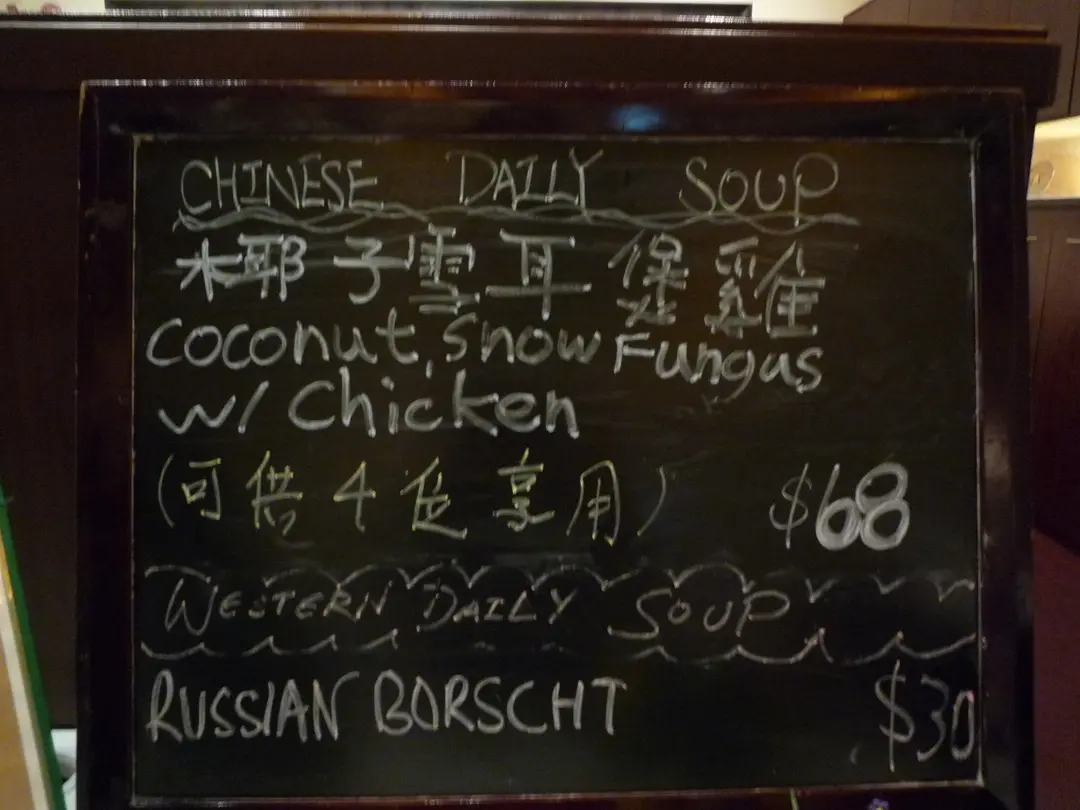 CHINESE DAILY SOUP
椰子雪耳煲雞
Coconut, Snow Fungus
w/ Chicken
(可供4位享用) $68
WESTERN DAILY SOUP
RUSSIAN BORSCHT $30